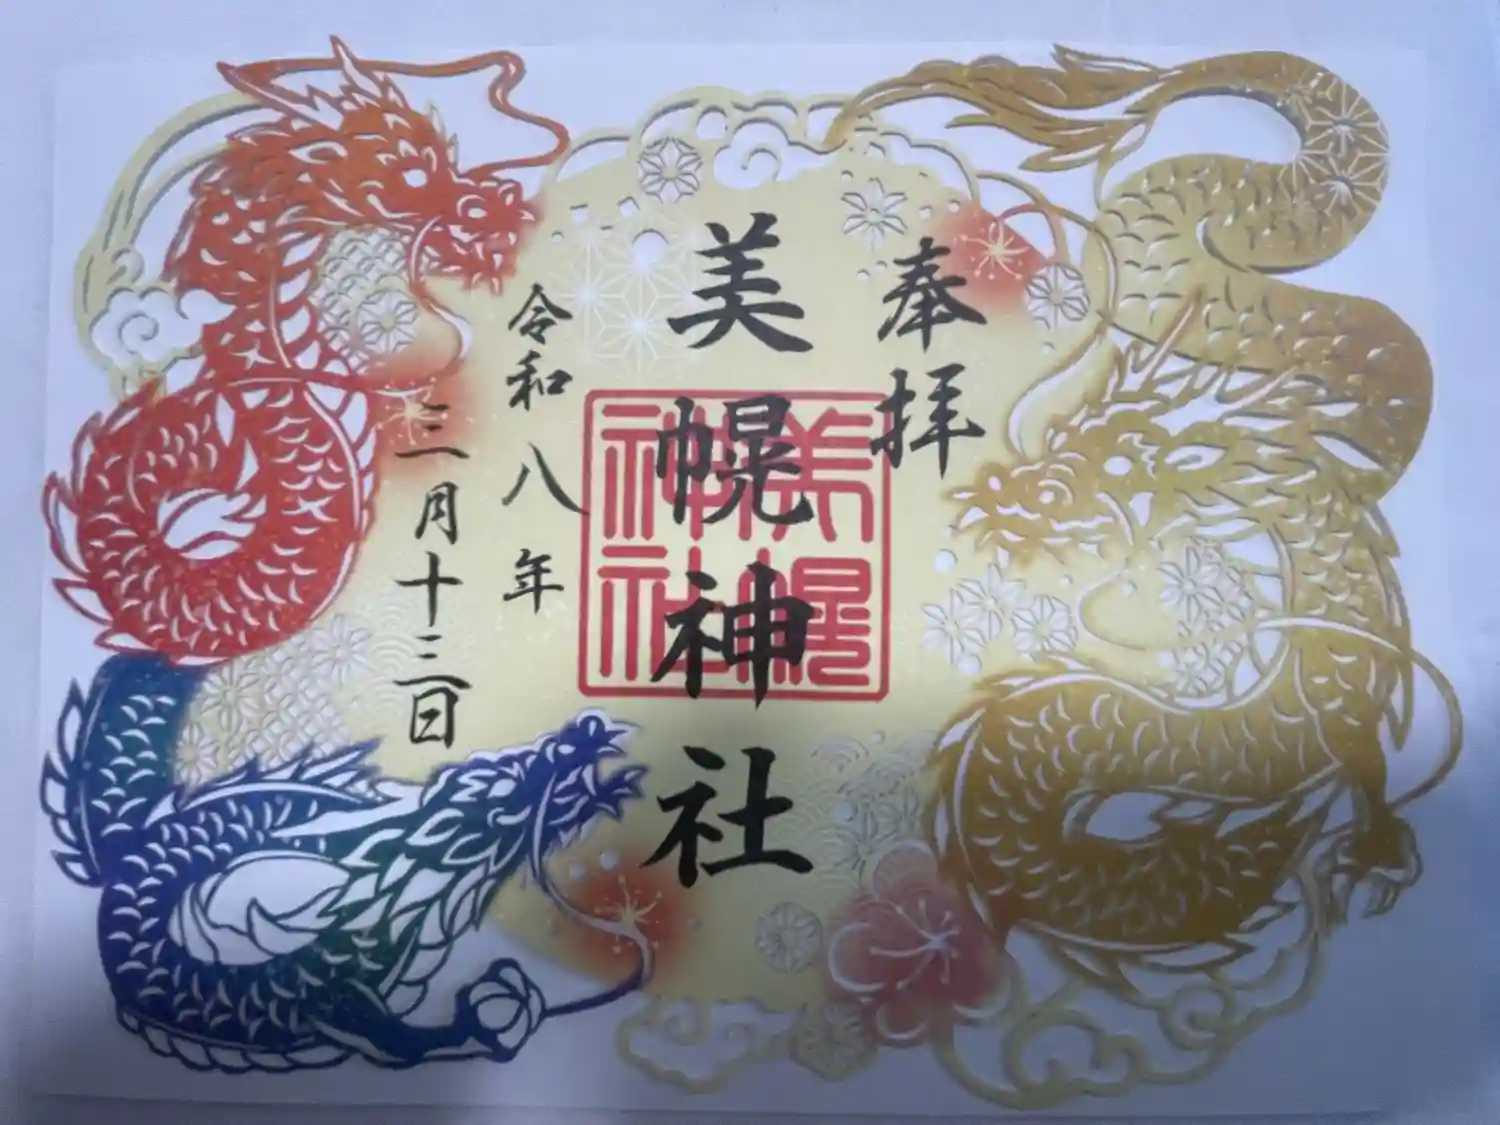 奉拝
美幌神社
美幌神社
令和八年
三月十三日